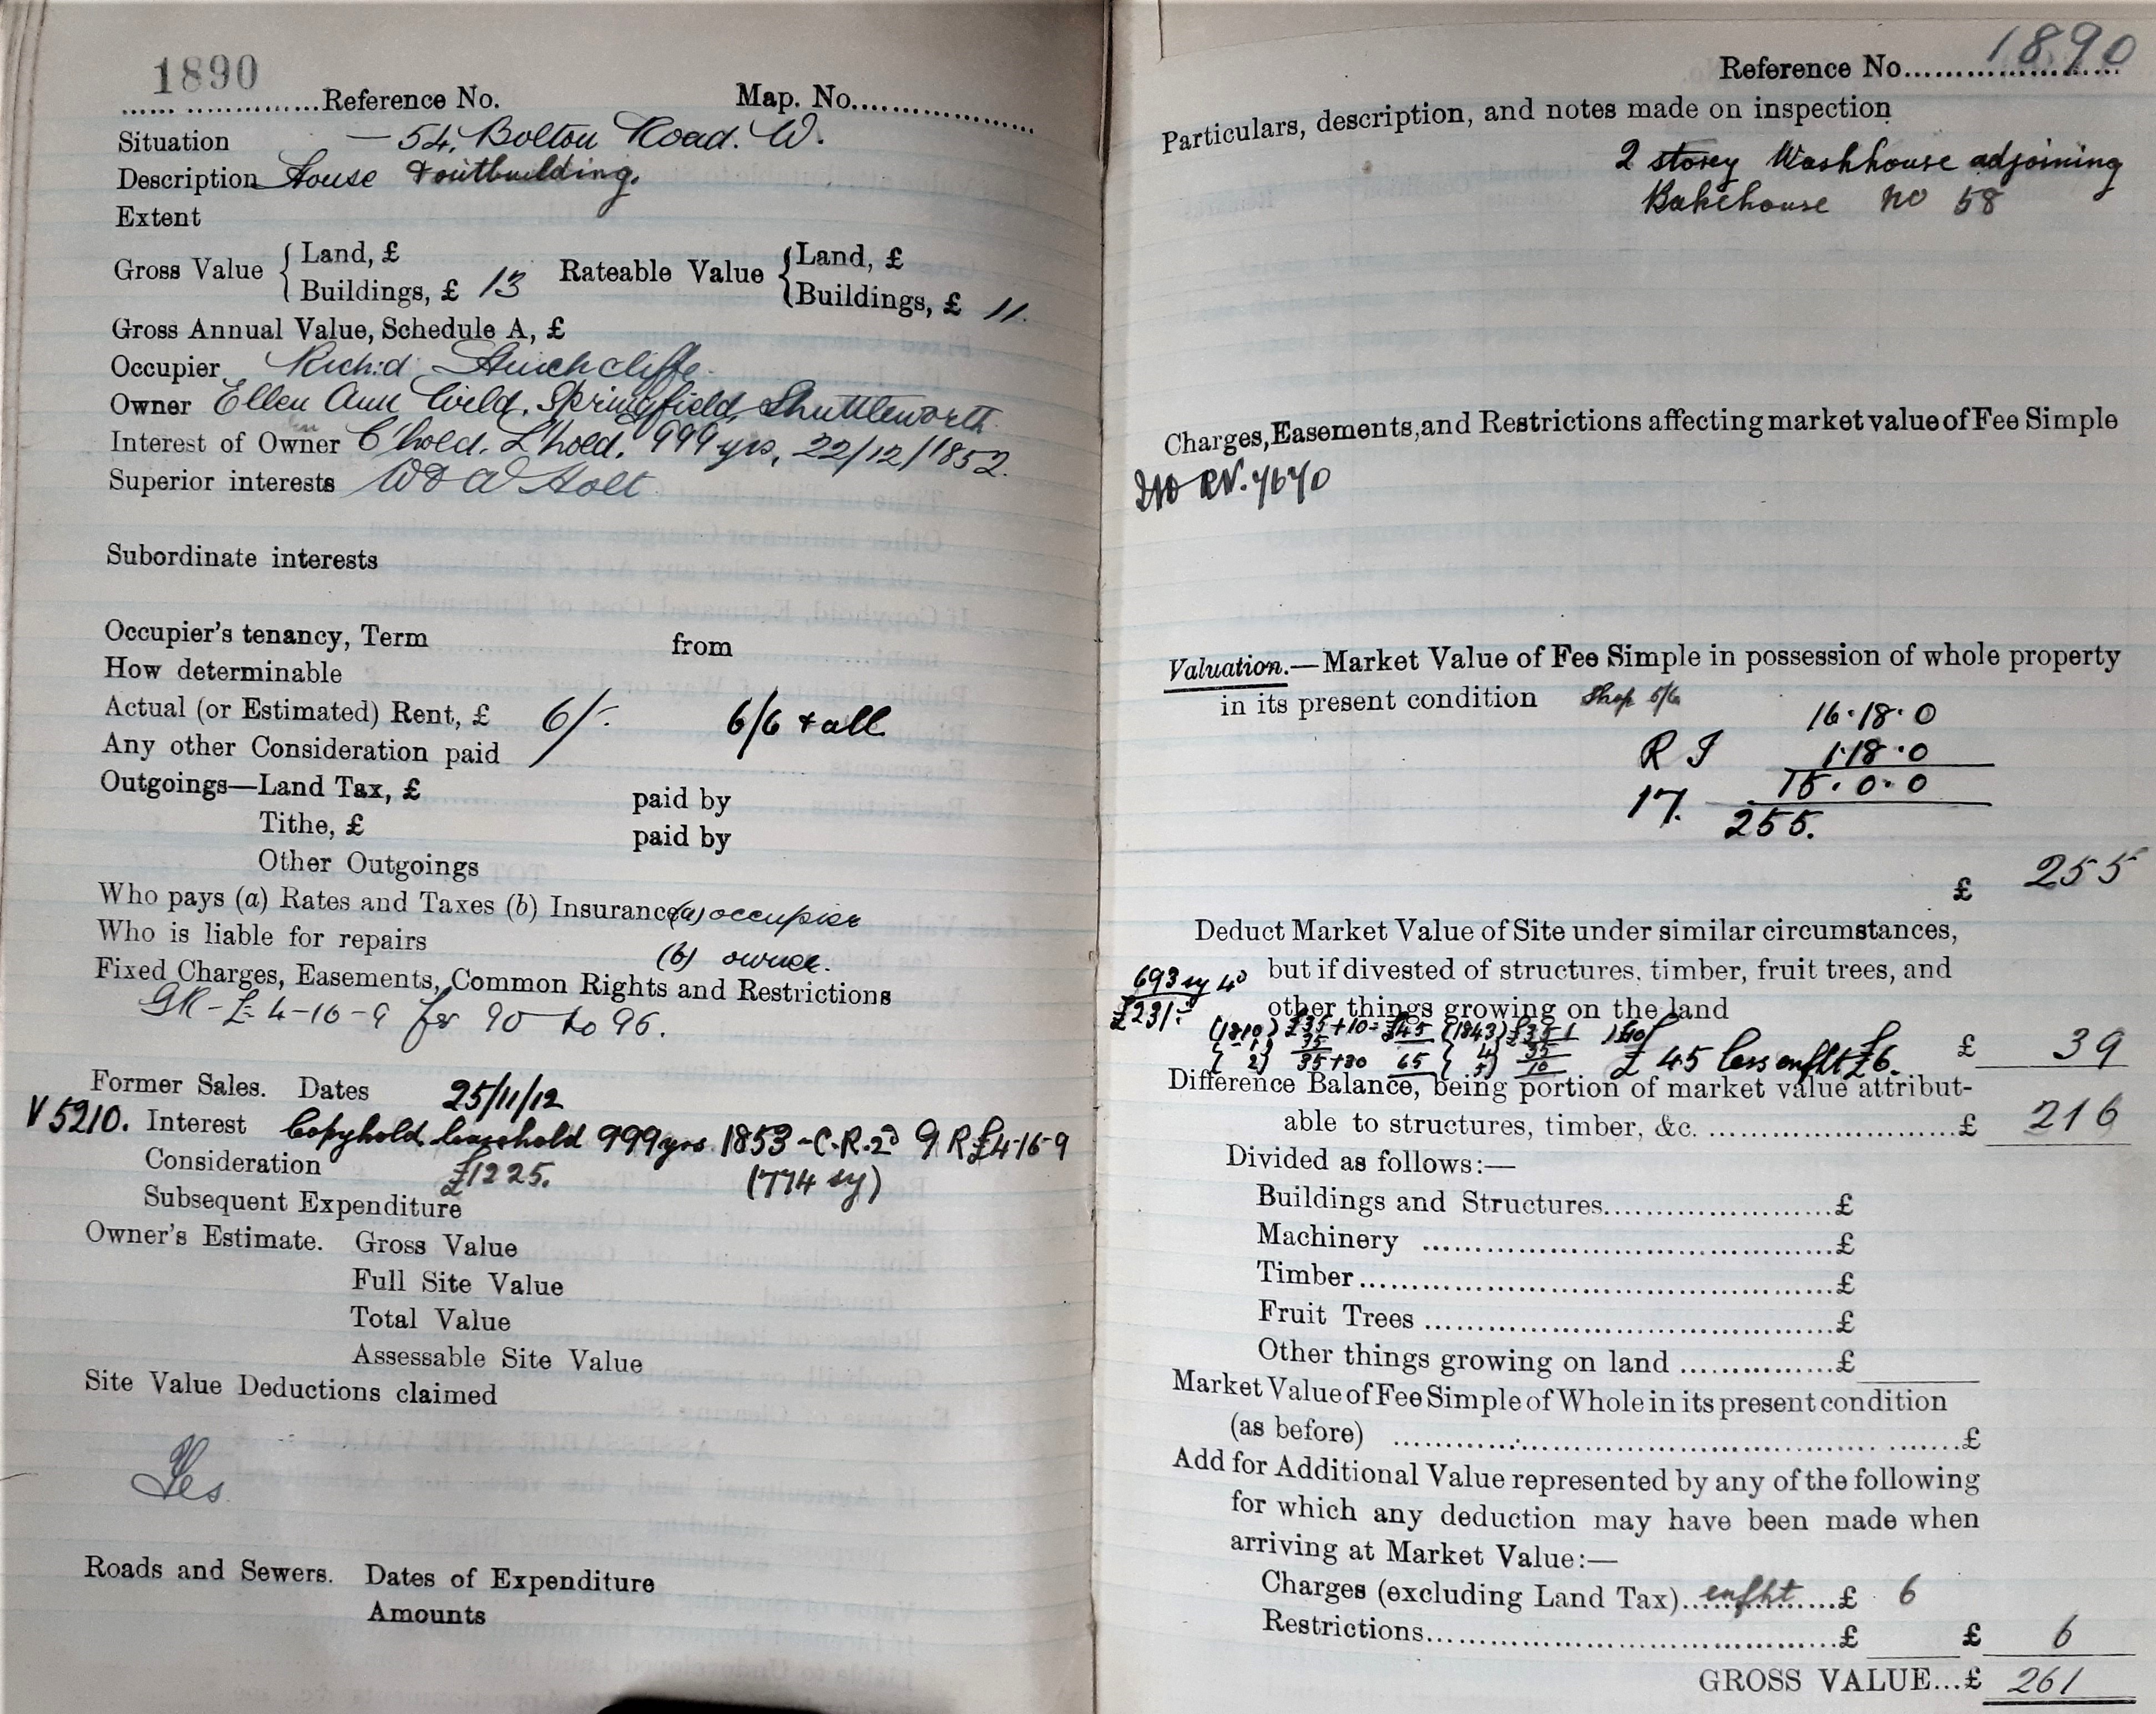 1890
Reference No. Map. No.
Situation — 54, Bolton Road. W.
Description House & outbuilding.
Extent
Gross Value { Land, £ Rateable Value { Land, £
Buildings, £ 13 Buildings, £ 11.
Gross Annual Value, Schedule A, £
Occupier Rich:d Hinchcliffe.
Owner Ellen Ann Wild, Springfield, Shuttleworth.
Interest of Owner C'hold. L'hold. 999 yrs, 22/12/1852.
Superior interests W & A Holt
Subordinate interests
Occupier's tenancy, Term from
How determinable
Actual (or Estimated) Rent, £ 6/-. 6/6 & all
Any other Consideration paid
Outgoings—Land Tax, £ paid by
Tithe, £ paid by
Other Outgoings
Who pays (a) Rates and Taxes (b) Insurance (a) occupier
Who is liable for repairs (b) owner.
Fixed Charges, Easements, Common Rights and Restrictions
GR - £4-16-9 for 90 to 96.
Former Sales. Dates 25/11/12
V 5210. Interest Copyhold leasehold 999 yrs 1853 - C.R. 2d G R £4-16-9
Consideration £1225. (774 sy)
Subsequent Expenditure
Owner's Estimate. Gross Value
Full Site Value
Total Value
Assessable Site Value
Site Value Deductions claimed
Yes
Roads and Sewers. Dates of Expenditure
Amounts
Reference No. 1890
Particulars, description, and notes made on inspection
2 storey Washhouse adjoining
Bakehouse no 58
Charges, Easements, and Restrictions affecting market value of Fee Simple
Valuation.—Market Value of Fee Simple in possession of whole property
in its present condition Shop 6/6
16.18.0
R I 1.18.0
15.0.0
17. 255.
£ 255
Deduct Market Value of Site under similar circumstances,
but if divested of structures, timber, fruit trees, and
693 sy 4d
other things growing on the land
£231:-
£35+10=£45 (1843)
35+30 65 £45 less enfht £6. £ 39
Difference Balance, being portion of market value attribut-
able to structures, timber, &c. £ 216
Divided as follows:—
Buildings and Structures £
Machinery £
Timber £
Fruit Trees £
Other things growing on land £
Market Value of Fee Simple of Whole in its present condition
(as before) £
Add for Additional Value represented by any of the following
for which any deduction may have been made when
arriving at Market Value:—
Charges (excluding Land Tax) enfht £ 6
Restrictions £ £ 6
GROSS VALUE...£ 261